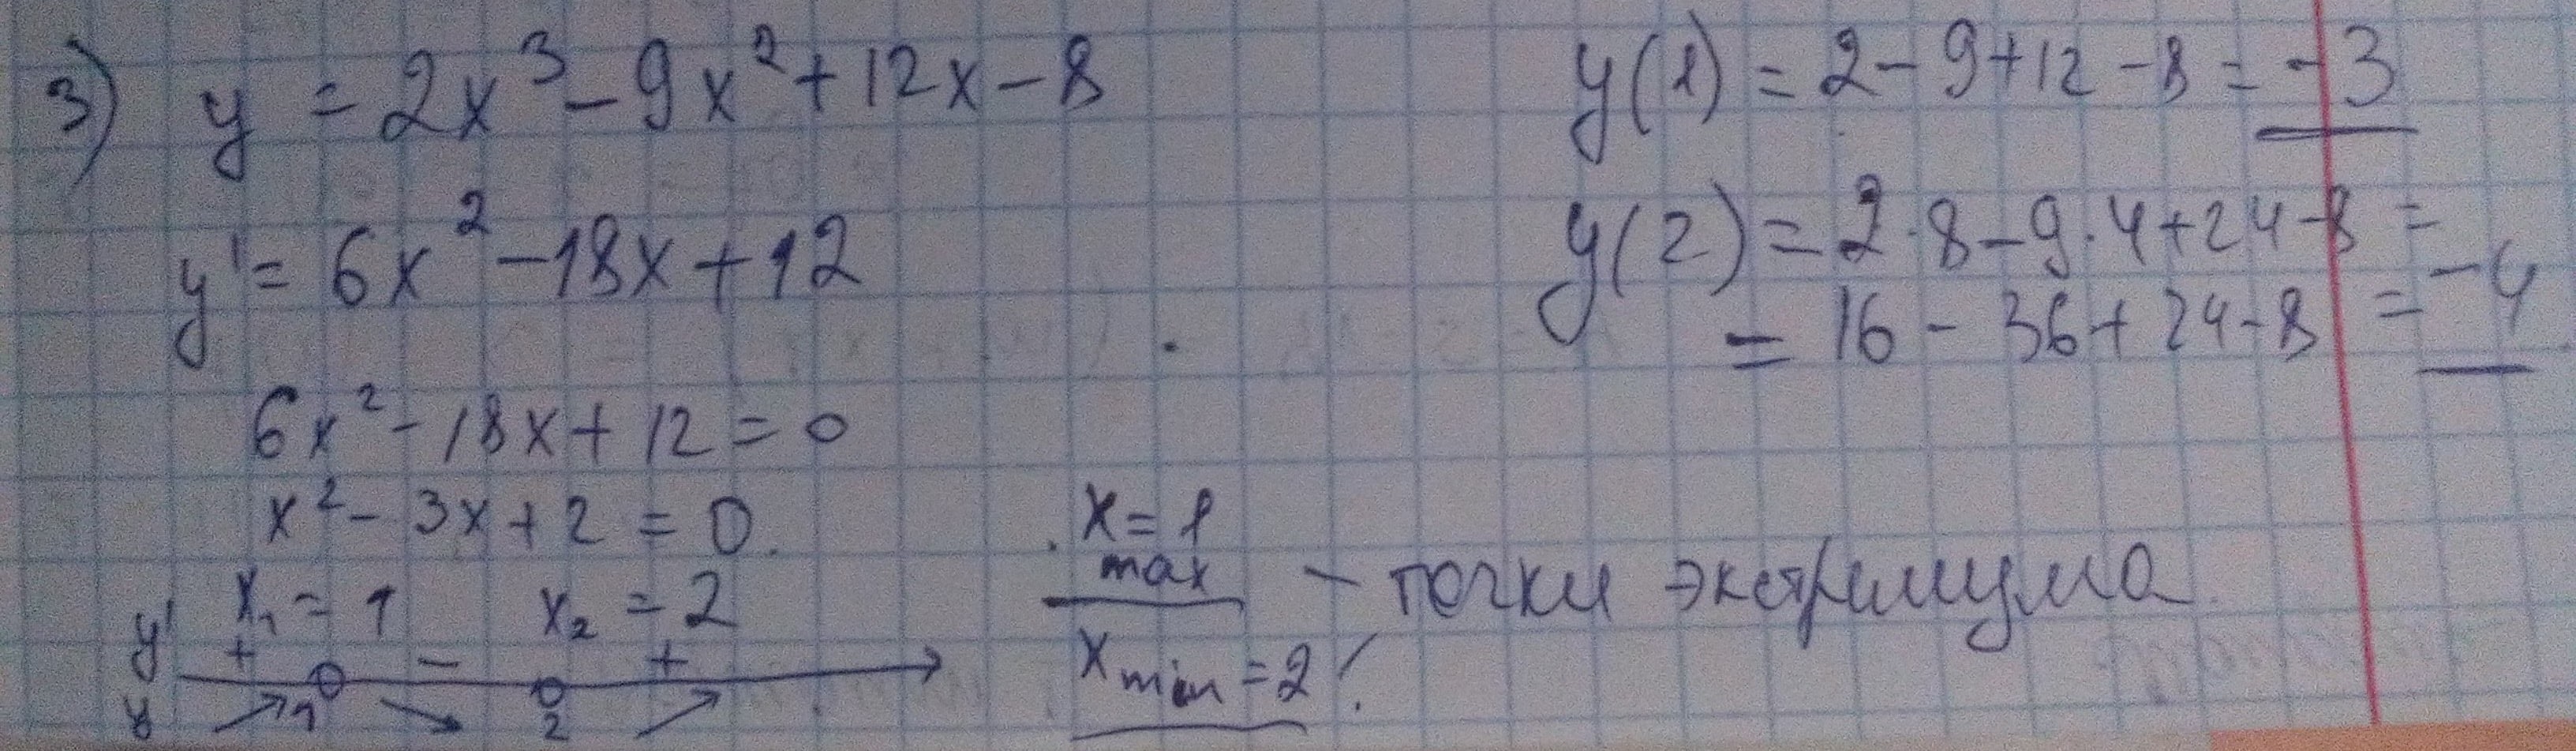 3) y = 2x³ - 9x² + 12x - 8
y' = 6x² - 18x + 12
6x² - 18x + 12 = 0
x² - 3x + 2 = 0.
x₁ = 1 x₂ = 2
y' + - +
y 1 2
y(1) = 2 - 9 + 12 - 8 = -3
y(2) = 2·8 - 9·4 + 24 - 8 =
= 16 - 36 + 24 - 8 = -4
x max = 1
- точки экстримума
x min = 2